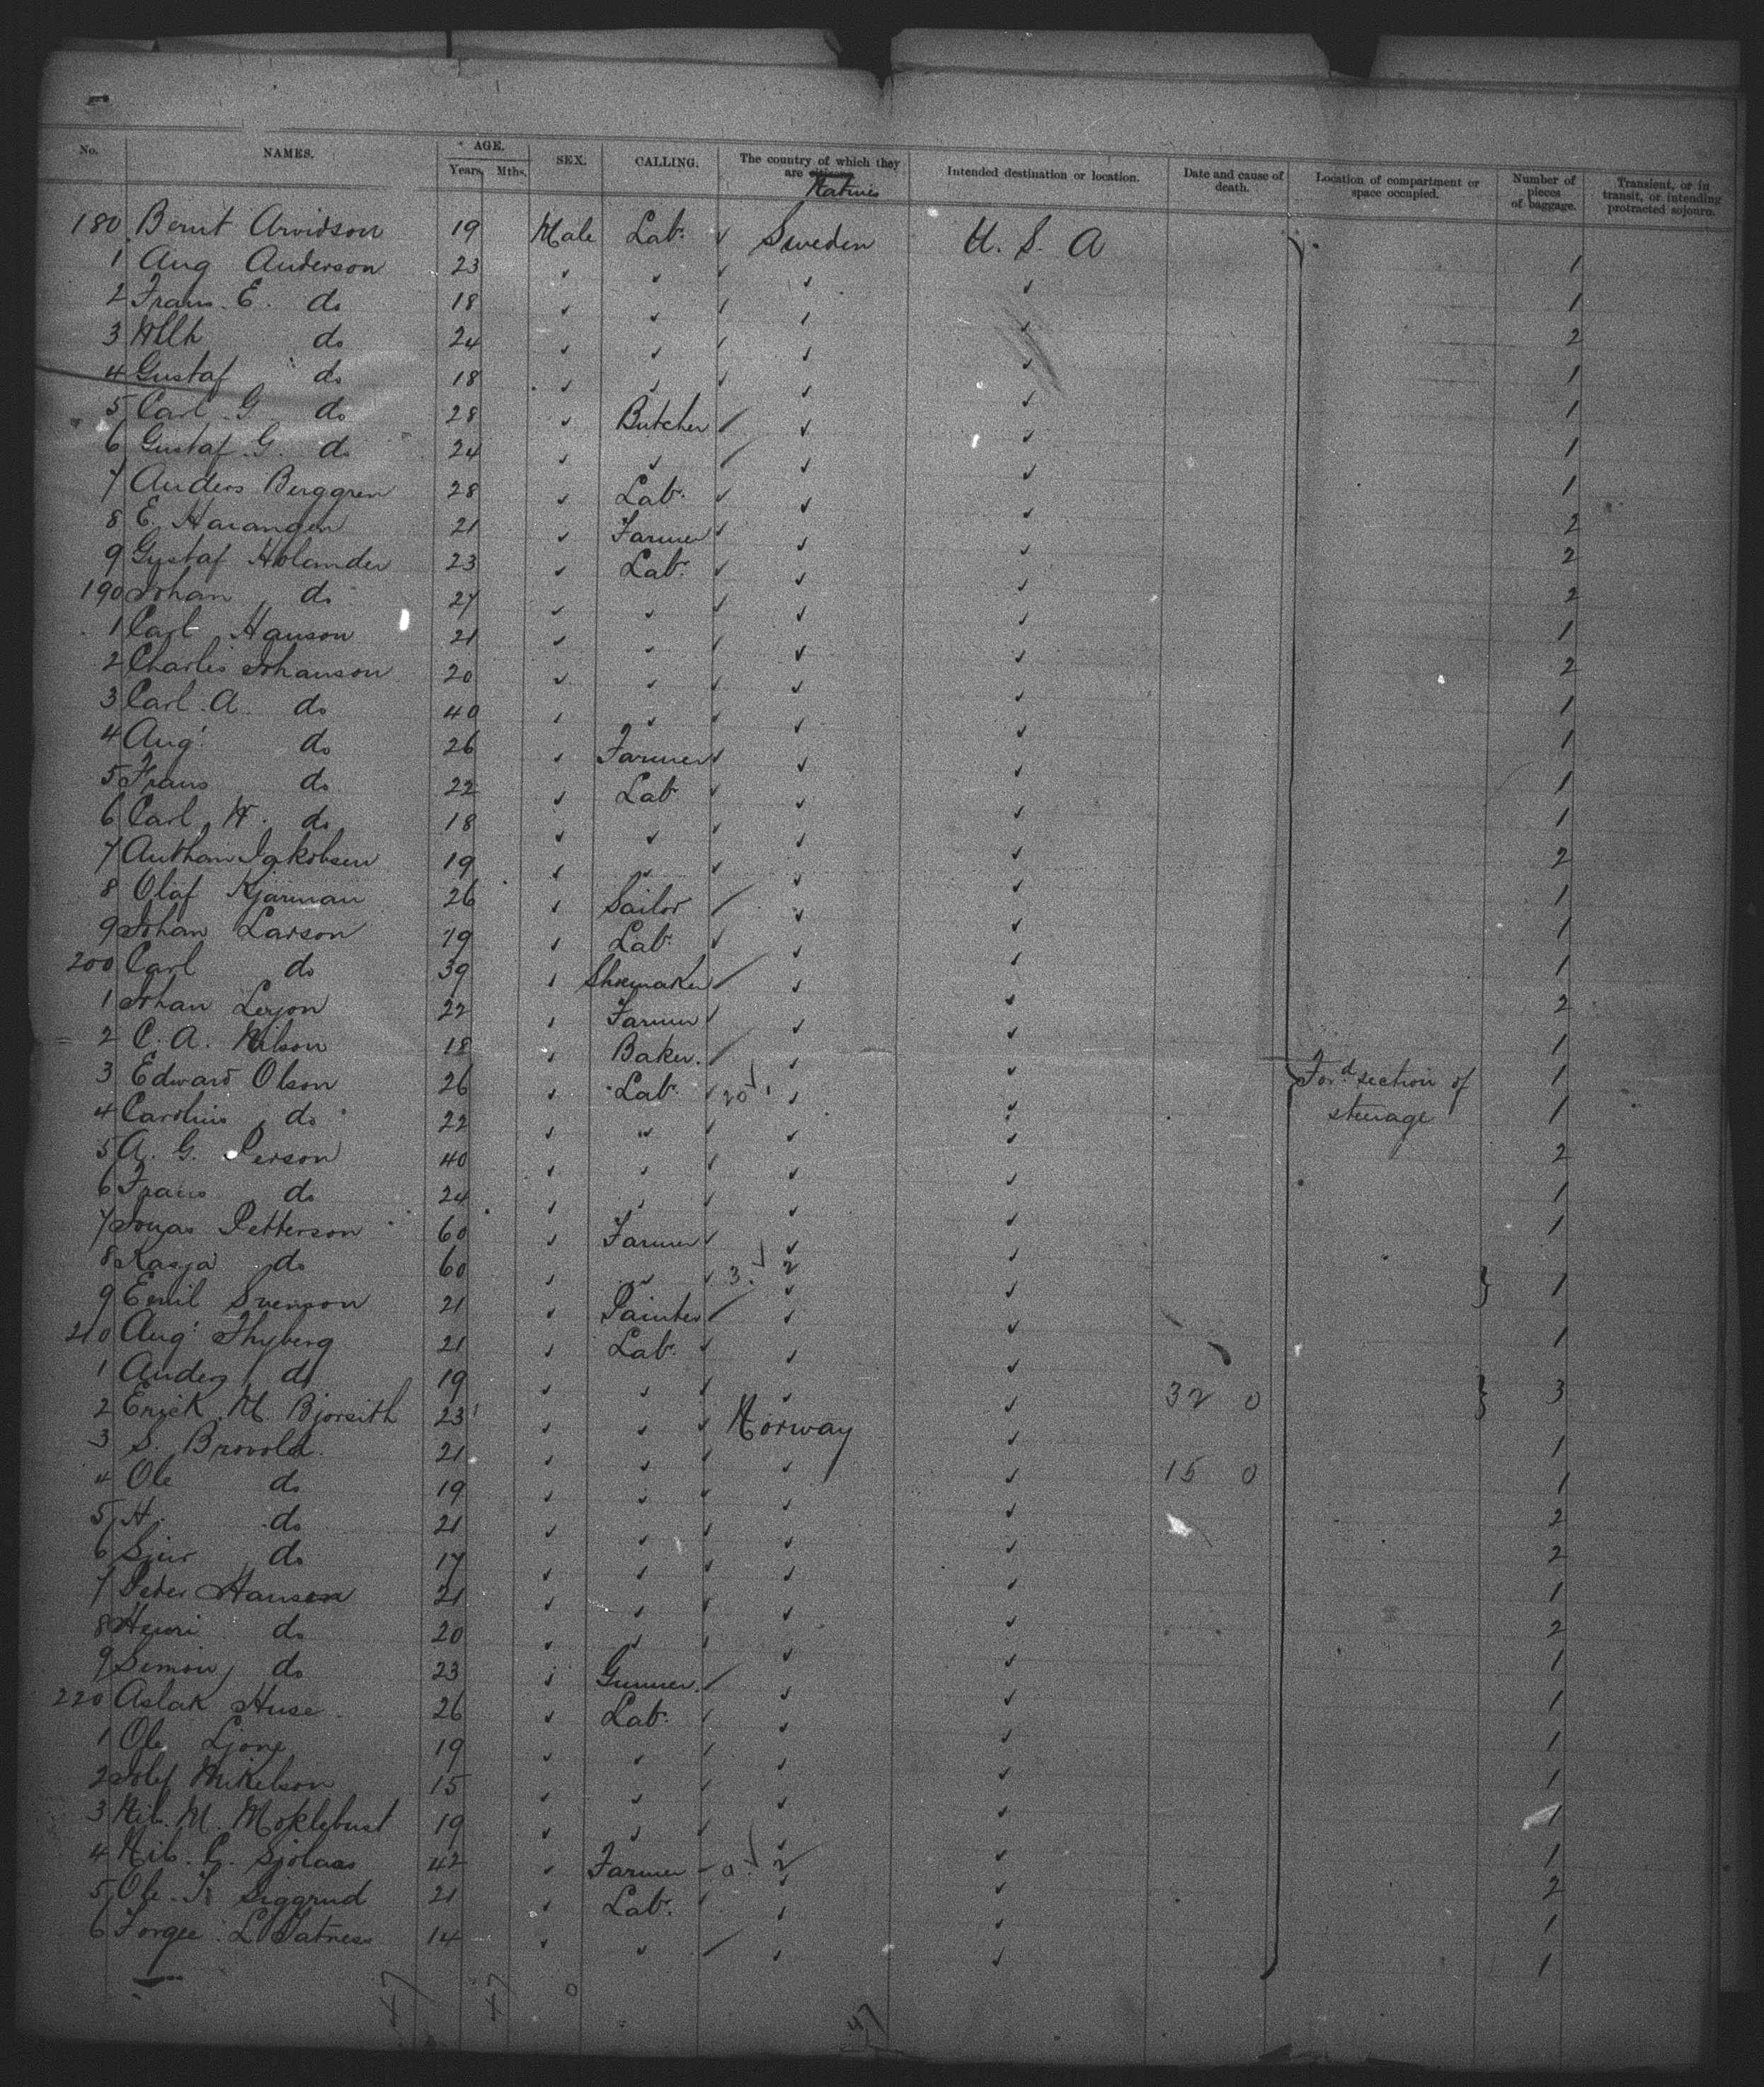 No. NAMES. AGE. SEX. CALLING. The country of which they are citizens Natives Intended destination or location. Date and cause of death. Location of compartment or space occupied. Number of pieces of baggage. Transient, or in transit, or intending protracted sojourn.
Years. Mths.
180 Bernt Arvidson 19 Male Lab. ✓ Sweden U. S. A
1 Aug Anderson 23 ✓ ✓ ✓ ✓ ✓ 1
2 Frans. E. do 18 ✓ ✓ ✓ ✓ ✓ 1
3 Wilh do 24 ✓ ✓ ✓ ✓ ✓ 2
4 Gustaf do 18 ✓ ✓ ✓ ✓ ✓ 1
5 Carl. G. do 28 ✓ Butcher ✓ ✓ ✓ 1
6 Gustaf. G. do 24 ✓ ✓ ✓ ✓ ✓ 1
7 Anders Berggren 28 ✓ Lab. ✓ ✓ ✓ 1
8 E. Harangen 21 ✓ Farmer ✓ ✓ ✓ 2
9 Gustaf Holander 23 ✓ Lab. ✓ ✓ ✓ 2
190 Johan do 27 ✓ ✓ ✓ ✓ ✓ 2
1 Carl Hanson 21 ✓ ✓ ✓ ✓ ✓ 1
2 Charles Johanson 20 ✓ ✓ ✓ ✓ ✓ 2
3 Carl. A. do 40 ✓ ✓ ✓ ✓ ✓ 1
4 Aug. do 26 ✓ Farmer ✓ ✓ ✓ 1
5 Frans do 22 ✓ Lab ✓ ✓ ✓ 1
6 Carl W. do 18 ✓ ✓ ✓ ✓ ✓ 1
7 Jakobsen 19 ✓ ✓ ✓ ✓ ✓ 2
8 Olaf Kjarman 26 ✓ Sailor ✓ ✓ ✓ 1
9 Johan Larson 19 ✓ Lab. ✓ ✓ ✓ 1
200 Carl do 39 ✓ Shoemaker ✓ ✓ ✓ 1
1 Johan 22 ✓ Farmer ✓ ✓ ✓ 2
2 C. A. Nilson 18 ✓ Baker. ✓ ✓ ✓ 1
3 Edward Olson 26 ✓ Lab. ✓ 20 ✓ ✓ Ford section of 1
4 Carolina do 22 ✓ ✓ ✓ ✓ ✓ steerage 1
5 A. G. Person 40 ✓ ✓ ✓ ✓ ✓ 2
6 Frans do 24 ✓ ✓ ✓ ✓ ✓ 1
7 Jonas Petterson 60 ✓ Farmer ✓ ✓ ✓ 1
8 Kasja do 60 ✓ ✓ ✓ 3. 2 ✓ ✓ } 1
9 Emil Svenson 21 ✓ Painter ✓ ✓ ✓
210 Aug. Thyberg 21 ✓ Lab. ✓ ✓ ✓ 1
1 Anders do 19 ✓ ✓ ✓ ✓ ✓ 32 0 } 3
2 Erick. M. Bjorsith 23 ✓ ✓ ✓ Norway ✓
3 S. Brovold. 21 ✓ ✓ ✓ ✓ ✓ 15 0 1
4 Ole do 19 ✓ ✓ ✓ ✓ ✓ 1
5 H. do 21 ✓ ✓ ✓ ✓ ✓ 2
6 Sjur do 17 ✓ ✓ ✓ ✓ ✓ 2
7 Peter Hansen 21 ✓ ✓ ✓ ✓ ✓ 1
8 Henri do 20 ✓ ✓ ✓ ✓ ✓ 2
9 Simon do 23 ✓ Gunner. ✓ ✓ ✓ 1
220 Aslak Huse 26 ✓ Lab. ✓ ✓ ✓ 1
1 Ole Ljone 19 ✓ ✓ ✓ ✓ ✓ 1
2 Mikelson 15 ✓ ✓ ✓ ✓ ✓ 1
3 Nils. M. Moklebust 19 ✓ ✓ ✓ ✓ ✓ 1
4 Nils. P. Sjolaas 42 ✓ Farmer 0. 2 ✓ ✓ 1
5 Ole. Siggrud 21 ✓ Lab. ✓ ✓ ✓ 2
6 Torger. L. 14 ✓ ✓ ✓ ✓ ✓ 1
1
47 47 0 47